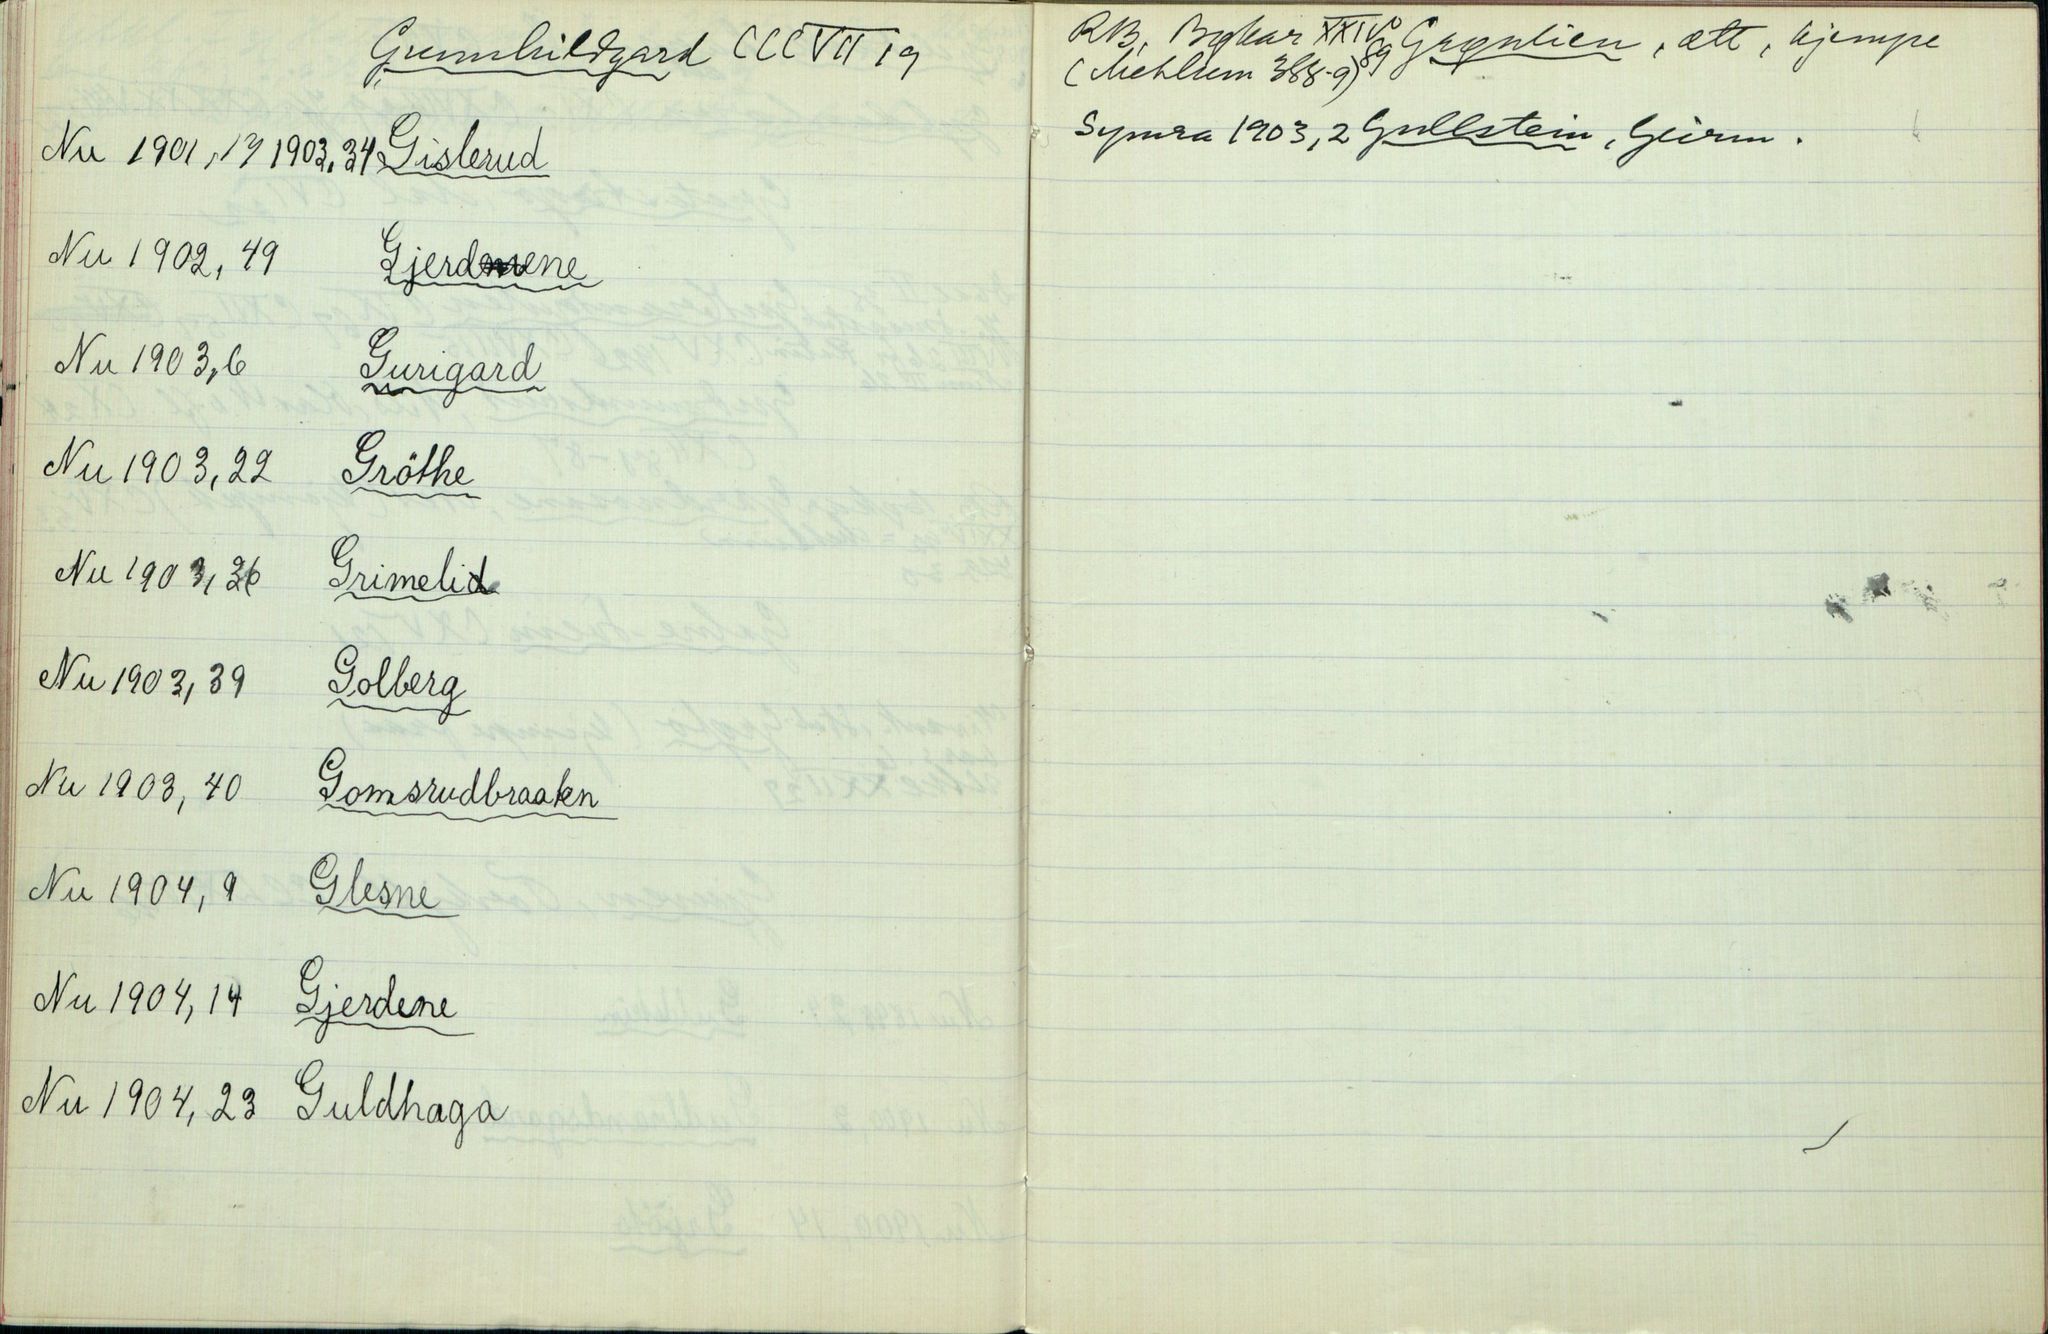 Gunnhildgard CCCVII 19
Nu 1901, 17 1903, 34 Gislerud
Nu 1902, 49 Gjerdene
Nu 1903, 6 Gurigard
Nu 1903, 22 Gröthe
Nu 1903, 36 Grimelid
Nu 1903, 39 Golberg
Nu 1903, 40 Gomsrudbraaten
Nu 1904, 9 Glesne
Nu 1904, 14 Gjerdene
Nu 1904, 23 Guldhaga
RB, XXIV 89 Grønlien, ætt, kjempe
(Mehlum 388-9)
Symra 1903, 2 Gullstein, Geirm.